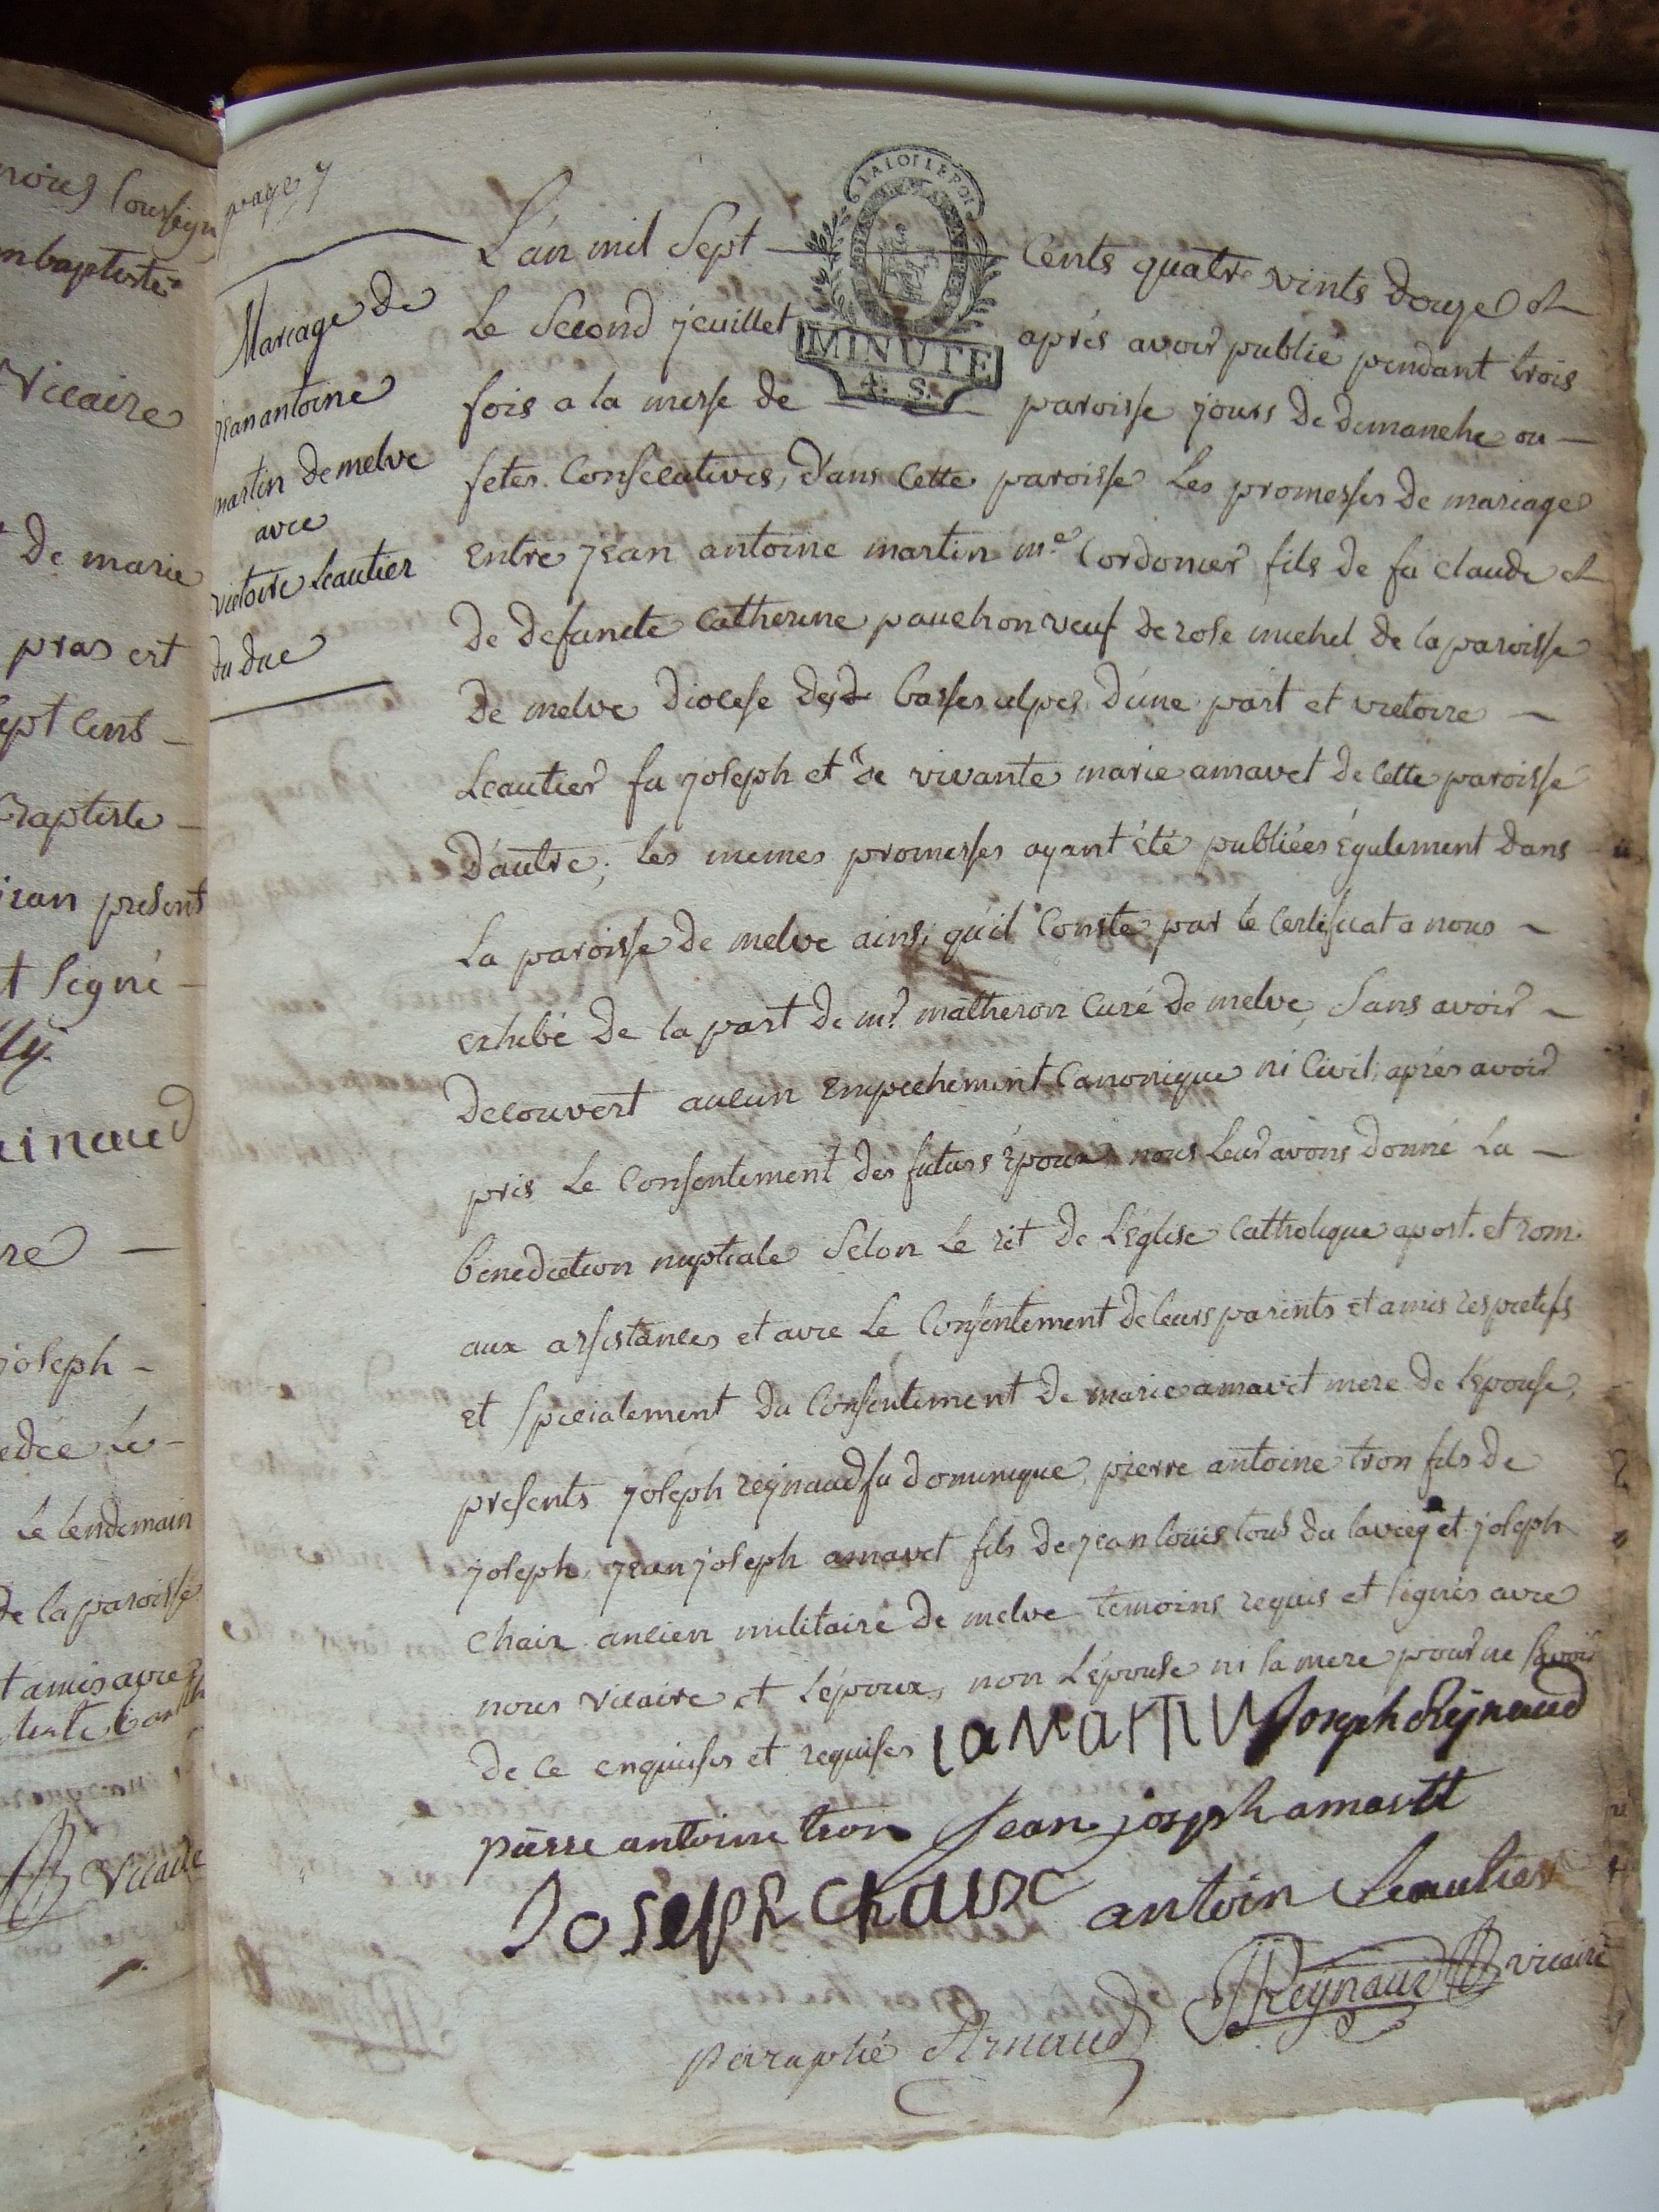 nous soussign
nbaptiste
Vicaire
De marie
pras est
sept cens
Baptiste
present
et signé
inaud
joseph
Le lendemain
de la paroisse
t amis avec
Vicaire
page 7
Mariage de
jean antoine
martin de melve
avec
victoire Leautier
du duc
LA LOI LE ROI
MINUTE
4. S.
L'an mil Sept Cents quatre vints douze et
Le Second jeuillet aprés avoir publié pendant trois
fois a la messe de paroisse jours de demanche ou
fetes Consecutives, dans Cette paroisse Les promesses de mariage
Entre jean antoine martin me. Cordonier fils de fu claude et
de defuncte Catherine pauchon veuf de rose michel de la paroisse
de melve Diocese des basses alpes d'une part et victoire
Leautier fu joseph et de vivante marie amavet de Cette paroisse
d'autre; les memes promesses ayant été publiées Également dans
La paroisse de melve ainsi qu'il Conste par le Certificat a nous
exhibé de la part de mr. matheron Curé de melve, Sans avoir
decouvert aucun Empechement Canonique ni Civil, aprés avoir
pris Le Consentement des futurs Époux nous Leur avons donné La
benediction nuptiale Selon Le rit de L'église Catholique apost. et rom.
aux assistances et avec Le Consentement de leurs parents et amis respectifs
et specialement du Consentement de marie amavet mere de l'épouse,
presents joseph reÿnaud fu dominique, pierre antoine tron fils de
joseph, jean joseph amavet fils de jean louis tous du lavercq et joseph
Chaix ancien militaire de melve temoins requis et signés avec
nous vicaire et L'époux, non L'épouse ni sa mere pour ne savoir
de ce enquises et requises Joseph Reÿnaud
pierre antoine tron Jean joseph amavett
Joseph Chaix antoin Leautier
Reÿnaud vicaire
Paraphé Arnaud